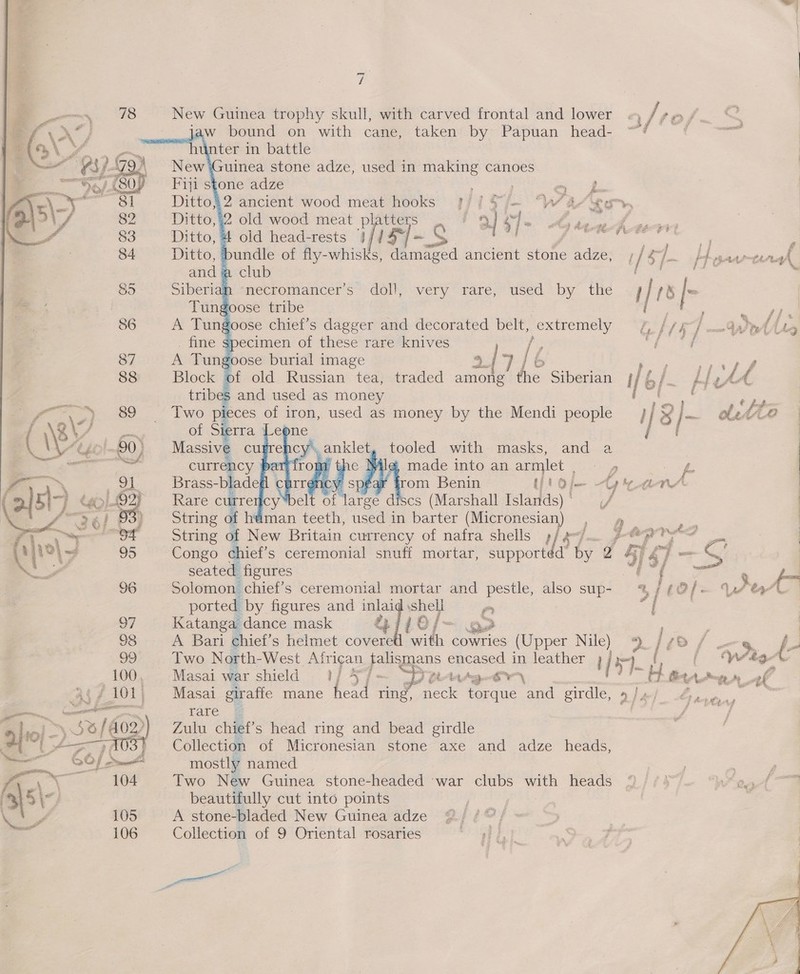 7
78 New Guinea trophy skull, with carved frontal and lower
jaw bound on with cane, taken by Papuan head-
hunter in battle
79 New Guinea stone adze, used in making canoes
80 Fiji stone adze
81 Ditto, 2 ancient wood meat hooks
82 Ditto, 2 old wood meat platters
83 Ditto, 4 old head-rests
84 Ditto, bundle of fly-whisks, damaged ancient stone adze,
and a club
85 Siberian necromancer's doll, very rare, used by the
Tungoose tribe
86 A Tungoose chief's dagger and decorated belt, extremely
fine specimen of these rare knives
87 A Tungoose burial image 2/7/6
88 Block of old Russian tea, traded among the Siberian
tribes and used as money
89 Two pieces of iron, used as money by the Mendi people
of Sierra Leone
90 Massive currency anklet, tooled with masks, and a
currency bar from the Nile, made into an armlet
91 Brass-bladed currency spear from Benin
92 Rare currency belt of large discs (Marshall Islands)
93 String of human teeth, used in barter (Micronesian)
94 String of New Britain currency of nafra shells
95 Congo chief's ceremonial snuff mortar, supported by 2
seated figures
96 Solomon chief's ceremonial mortar and pestle, also sup-
ported by figures and inlaid shell
97 Katanga dance mask
98 A Bari chief's helmet covered with cowries (Upper Nile)
99 Two North-West African talismans encased in leather
100 Masai war shield
101 Masai giraffe mane head ring, neck torque and girdle,
rare
102 Zulu chief's head ring and bead girdle
103 Collection of Micronesian stone axe and adze heads,
mostly named
104 Two New Guinea stone-headed war clubs with heads
beautifully cut into points
105 A stone-bladed New Guinea adze
106 Collection of 9 Oriental rosaries